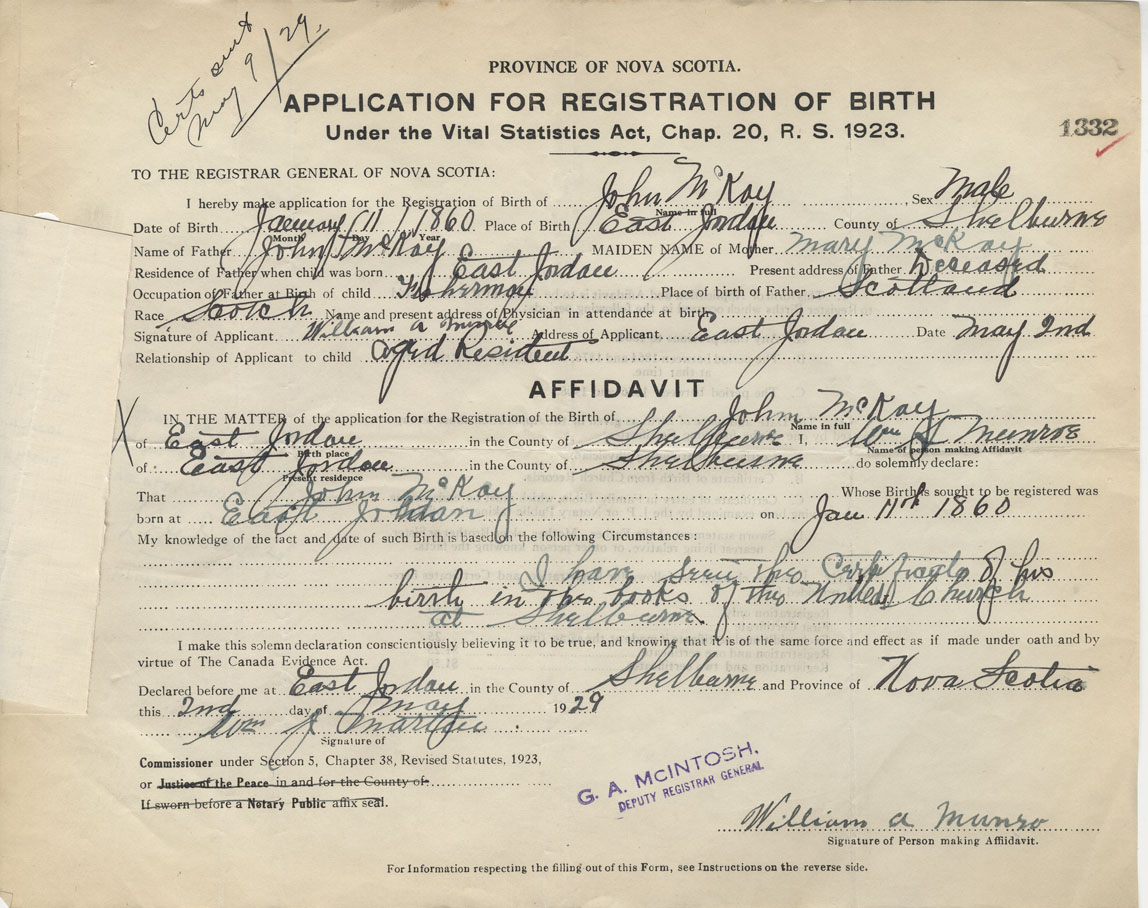 Certs sent
May 9/29.
PROVINCE OF NOVA SCOTIA.
APPLICATION FOR REGISTRATION OF BIRTH
Under the Vital Statistics Act, Chap. 20, R. S. 1923.
1332
TO THE REGISTRAR GENERAL OF NOVA SCOTIA:
I hereby make application for the Registration of Birth of John McKay Sex Male
Name in full
Date of Birth January 11 1860 Place of Birth East Jordan County of Shelburne
Month Day Year
Name of Father John McKay MAIDEN NAME of Mother Mary McKay
Residence of Father when child was born East Jordan Present address of Father Deceased
Occupation of Father at Birth of child Fisherman Place of birth of Father Scotland
Race Scotch Name and present address of Physician in attendance at birth
Signature of Applicant William a Munroe Address of Applicant East Jordan Date May 2nd
Relationship of Applicant to child aged Resident
AFFIDAVIT
X IN THE MATTER of the application for the Registration of the Birth of John McKay
Name in full
of East Jordan in the County of Shelburne I, Wm A Munroe
Birth place Name of person making Affidavit
of East Jordan in the County of Shelburne do solemnly declare:
Present residence
That John McKay Whose Birth is sought to be registered was
born at East Jordan on Jan 11th 1860
My knowledge of the fact and date of such Birth is based on the following Circumstances:
I have seen the Certificate of his
birth in the books of the United Church
at Shelburne.
I make this solemn declaration conscientiously believing it to be true, and knowing that it is of the same force and effect as if made under oath and by
virtue of The Canada Evidence Act.
Declared before me at East Jordan in the County of Shelburne and Province of Nova Scotia
this 2nd day of May 1929
Wm J
Signature of
Commissioner under Section 5, Chapter 38, Revised Statutes, 1923,
or Justice of the Peace in and for the County of
If sworn before a Notary Public affix seal.
G. A. McINTOSH.
DEPUTY REGISTRAR GENERAL
William a Munro
Signature of Person making Affiidavit.
For Information respecting the filling out of this Form, see Instructions on the reverse side.